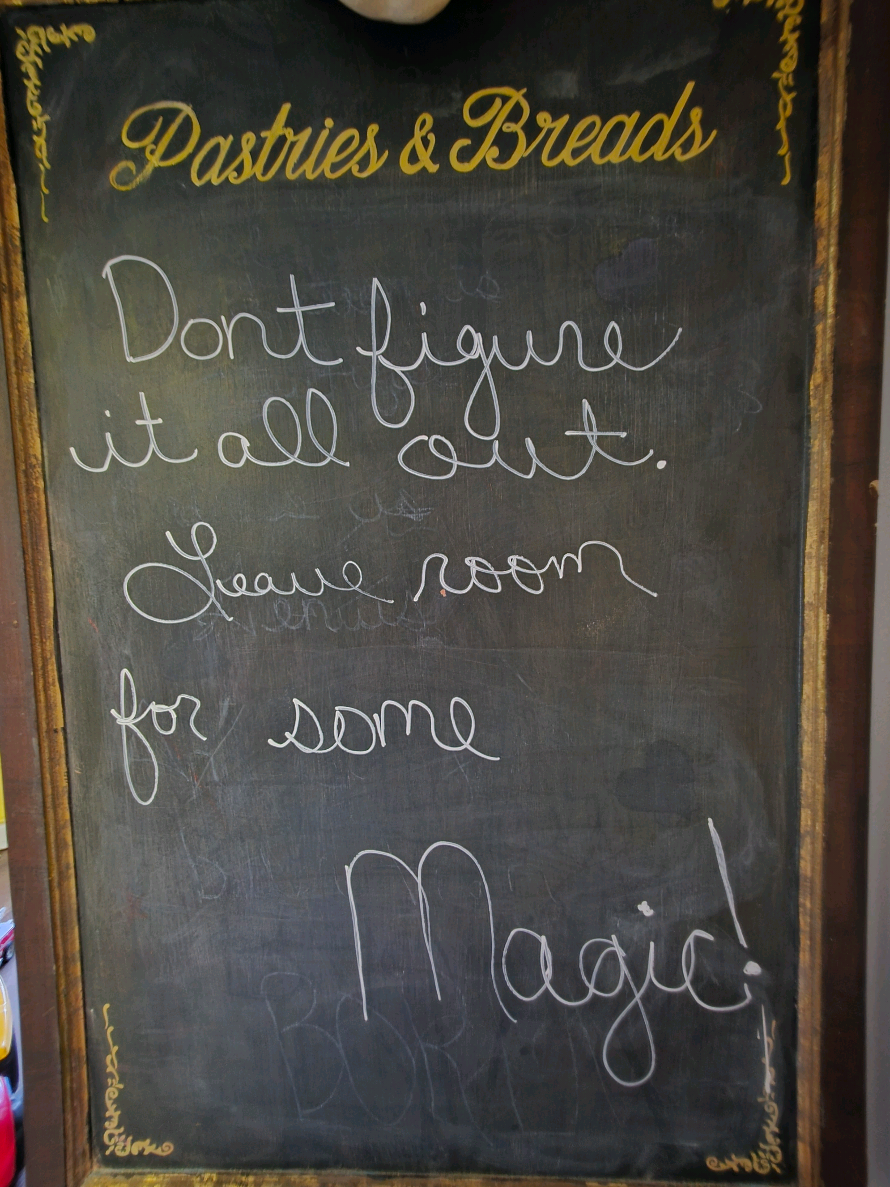 Pastries & Breads
Dont figure
it all out.
Leave room
for some
Magic!